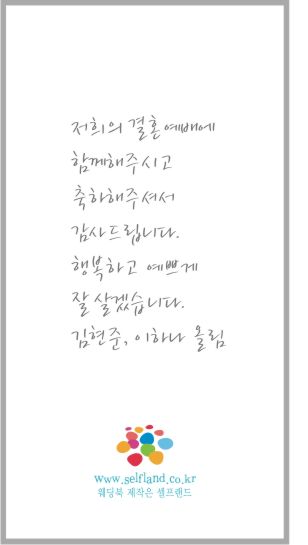 저희의 결혼예배에
함께해주시고
축하해주셔서
감사드립니다.
행복하고 예쁘게
잘 살겠습니다.
김현준, 이하나 올림
www.selfland.co.kr
웨딩북 제작은 셀프랜드